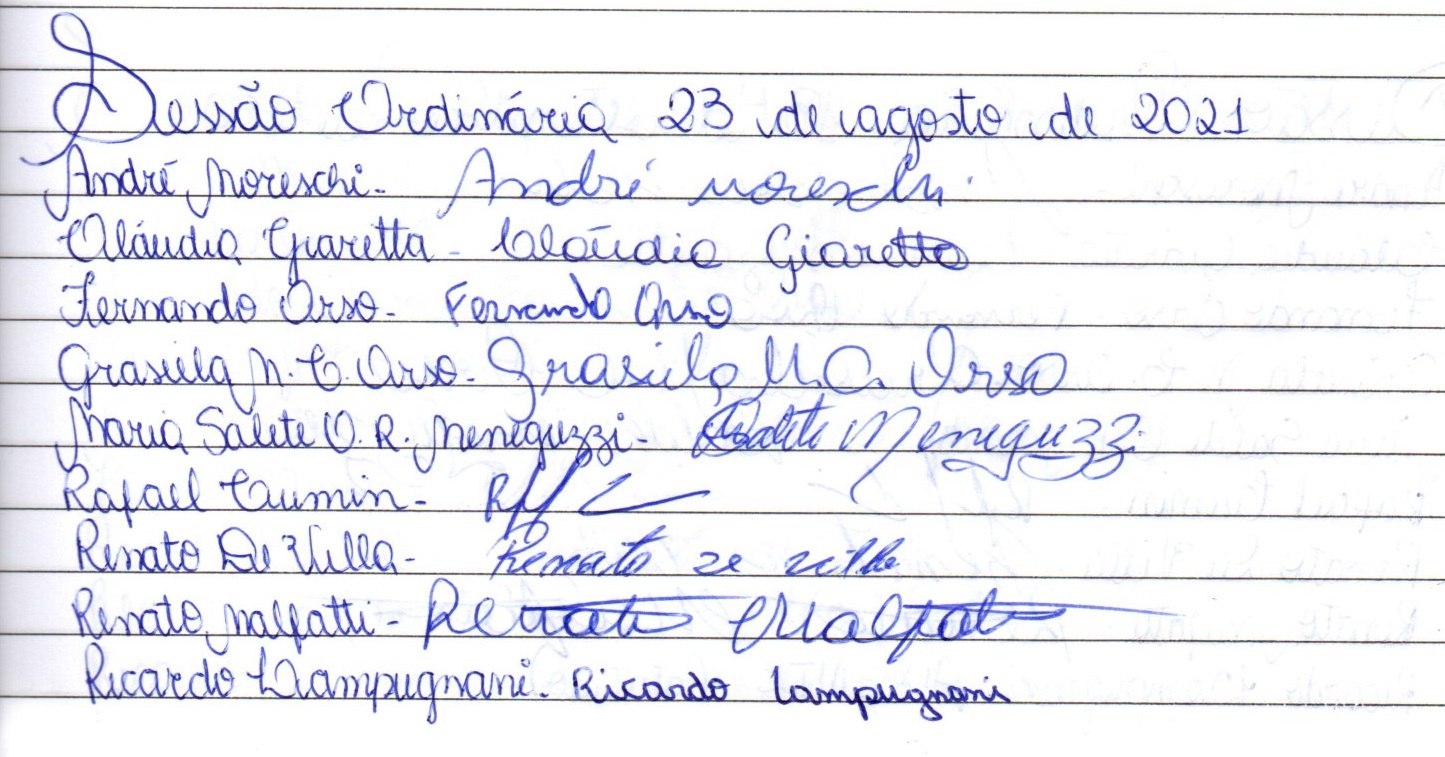 Sessão Ordinária 23 de agosto de 2021
André Moreschi - André Moreschi
Cláudia Giaretta - Cláudia Giaretta
Fernando Orso - Fernando Orso
Grasiela M. C. Orso - Grasiela M. C. Orso
Maria Salete O. R. Meneguzzi - Salete Meneguzzi
Rafael Cumin -
Renato De Villa - Renato De Villa
Renato Malfatti - Renato Malfatti
Ricardo Lampugnani - Ricardo Lampugnani